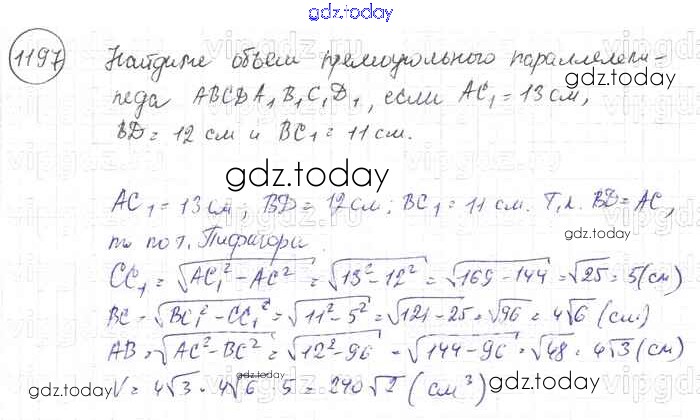 gdz.today
1197 Найдите объем прямоугольного параллелепи-
педа ABCDA₁B₁C₁D₁, если AC₁ = 13 см,
gdz.today
BD = 12 см и BC₁ = 11 см.
gdz.today
AC₁ = 13 см; BD = 12 см; BC₁ = 11 см. Т.к. BD = AC,
то по т. Пифагора
gdz.today
CC₁ = √AC₁² - AC² = √13² - 12² = √169 - 144 = √25 = 5 (см)
BC = √BC₁² - CC₁² = √11² - 5² = √121 - 25 = √96 = 4√6 (см)
AB = √AC² - BC² = √12² - 96 = √144 - 96 = √48 = 4√3 (см)
V = 4√3 · 4√6 · 5 = 240√2 (см³)
gdz.today
gdz.today